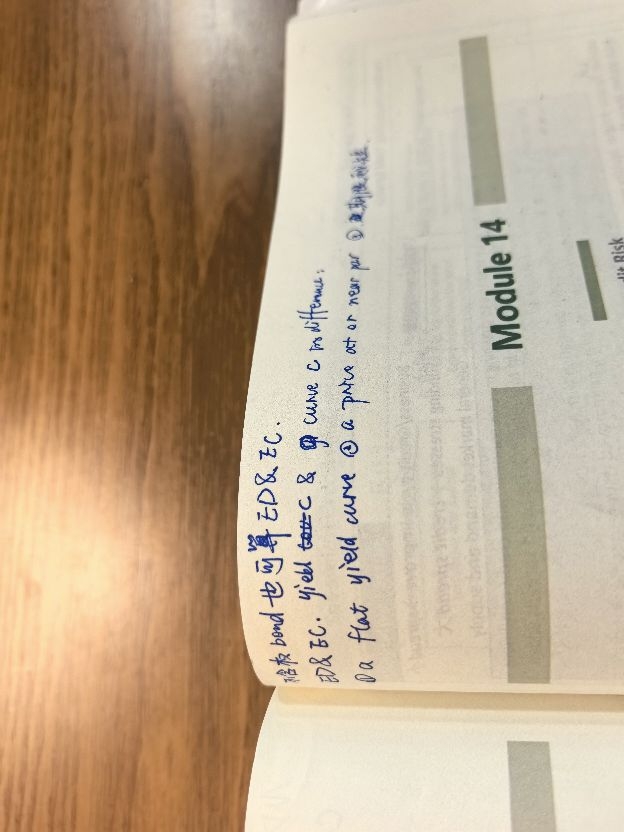 不含权 bond 也可算 ED & EC.
ED & EC. yield C & curve C 's difference:
① a flat yield curve ② a price at or near par ③
Module 14
dit Risk